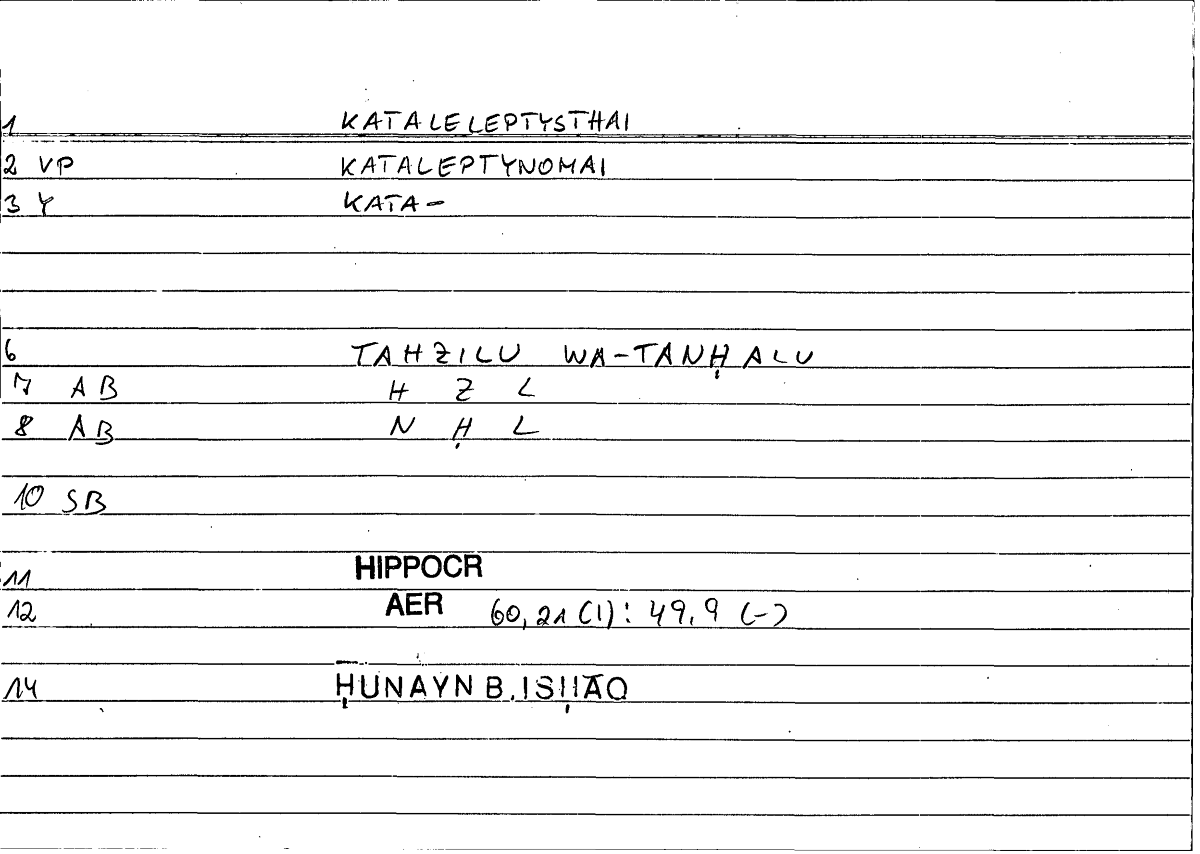 1 KATALELEPTYSTHAI
2 VP KATALEPTYNOMAI
3 Y KATA-
6 TAHZILU WA-TANḤALU
7 AB H Z L
8 AB N Ḥ L
10 SB
11 HIPPOCR
12 AER 60,21 (1): 49,9 (-)
14 ḤUNAYN B. ISḤĀQ